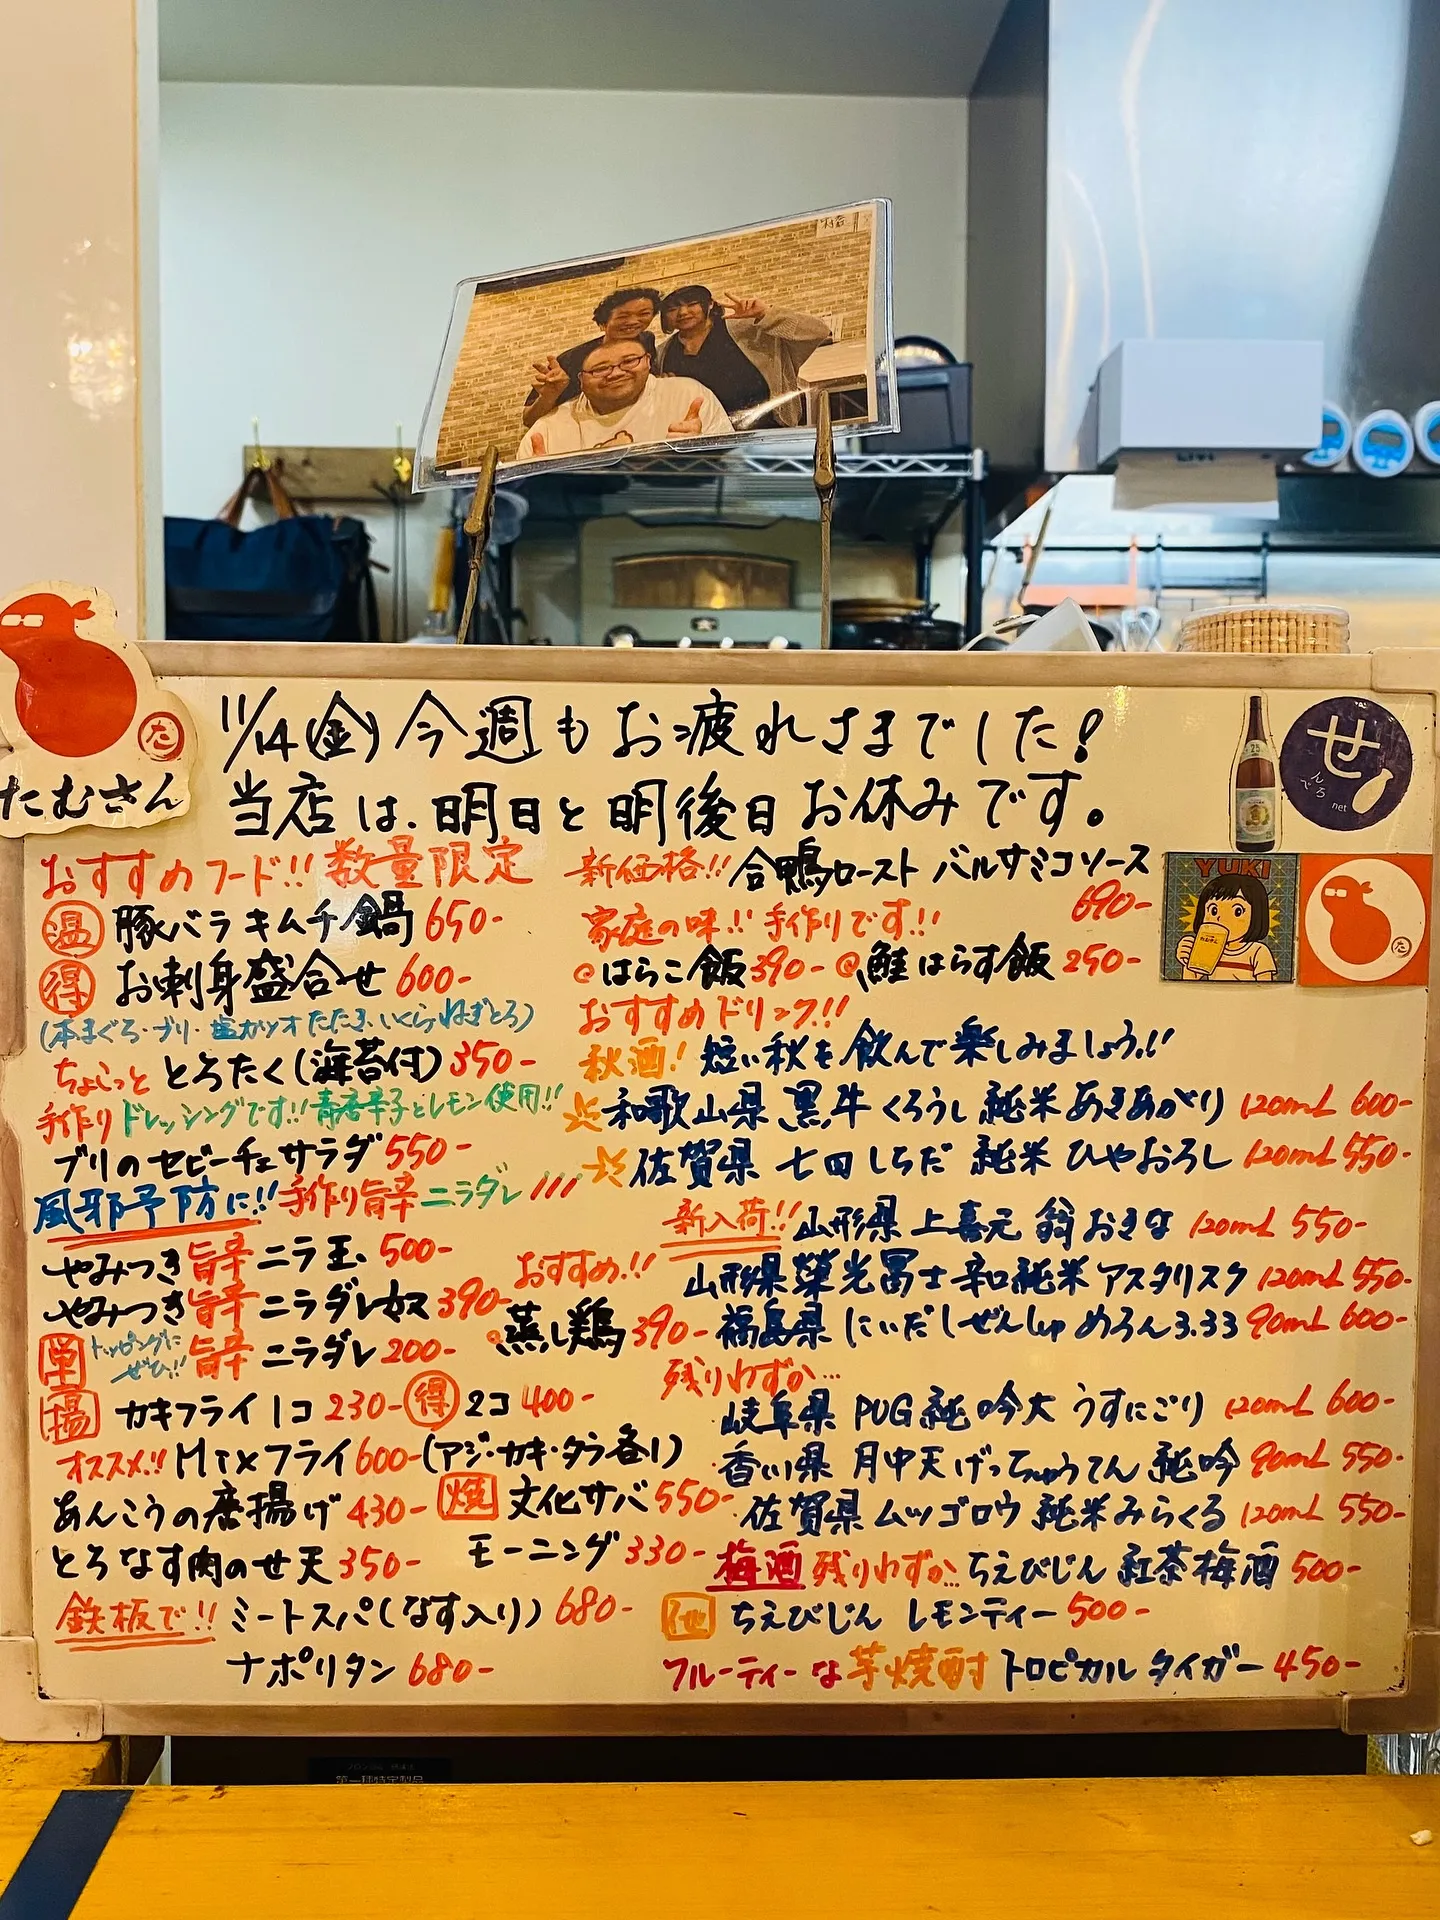 11/14(金) 今週もお疲れさまでした!
当店は、明日と明後日お休みです。
たむさん
た
せ
んでろ
net
YUKI
た
おすすめフード!! 数量限定
温 豚バラキムチ鍋 650-
得 お刺身盛合せ 600-
(本まぐろ・ブリ・塩カツオたたき・いくら・ねぎとろ)
ちょこっと とろたく(海苔付) 350-
手作りドレッシングです!! 青唐辛子とレモン使用!!
ブリのセビーチェサラダ 550-
風邪予防に!! 手作り旨辛ニラダレ!!!
やみつき旨辛ニラ玉 500-
やみつき旨辛ニラダレ奴 390-
単 トッピングにぜひ!! 旨辛ニラダレ 200-
おすすめ!!
蒸し鶏 390-
揚 カキフライ 1コ 230- 得 2コ 400-
オススメ!! MIXフライ 600- (アジ・カキ・タラ各1)
あんこうの唐揚げ 430-
とろなす肉のせ天 350-
焼 文化サバ 550-
モーニング 330-
鉄板で!! ミートスパ(なす入り) 680-
ナポリタン 680-
新価格!! 合鴨ロースト バルサミコソース
690-
家庭の味!! 手作りです!!
@はらこ飯 390- @鮭はらす飯 290-
おすすめドリンク!!
秋酒! 短い秋を飲んで楽しみましょう!!
和歌山県 黒牛 くろうし 純米 あきあがり 120mL 600-
佐賀県 七田 しちだ 純米 ひやおろし 120mL 550-
新入荷!! 山形県 上喜元 翁 おきな 120mL 550-
山形県 榮光冨士 辛口純米 アスタリスク 120mL 550-
福島県 にいだしぜんしゅ めろん3.33 90mL 600-
残りわずか…
岐阜県 PUG 純吟大 うすにごり 120mL 600-
香川県 月中天 げっちゅうてん 純吟 90mL 550-
佐賀県 ムツゴロウ 純米 みらくる 120mL 550-
梅酒 残りわずか… ちえびじん 紅茶梅酒 500-
他 ちえびじん レモンティー 500-
フルーティーな芋焼酎 トロピカルタイガー 450-